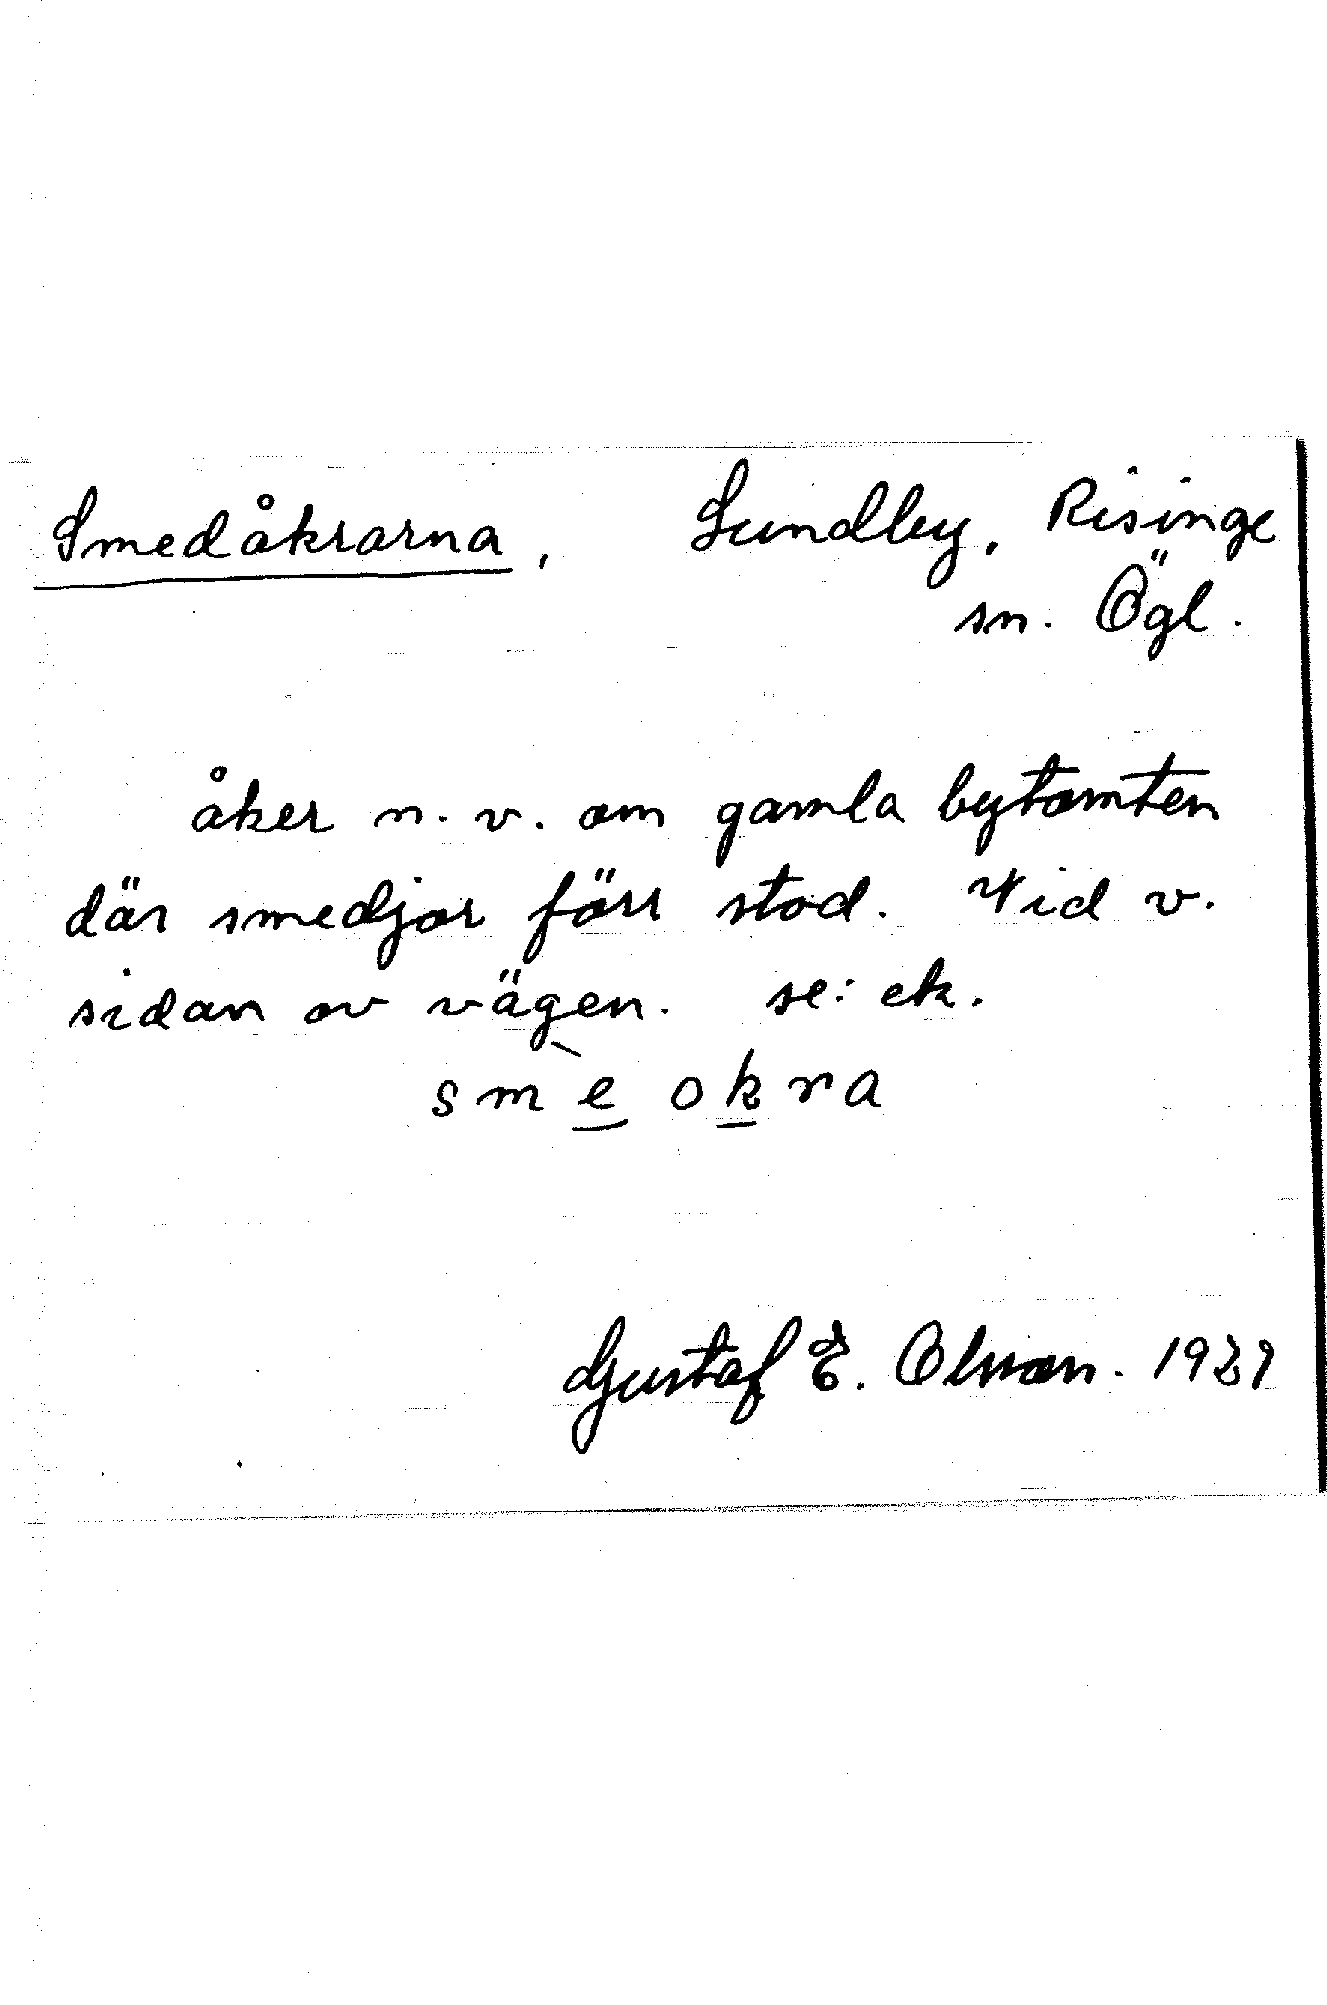 Smedåkrarna, Lundby, Risinge
sn. Ögl.
åker n. v. om gamla bytomten
där smedjor förr stod. Vid v.
sidan av vägen. se: ek.
smè okra
Gustaf E. Olsson. 1929